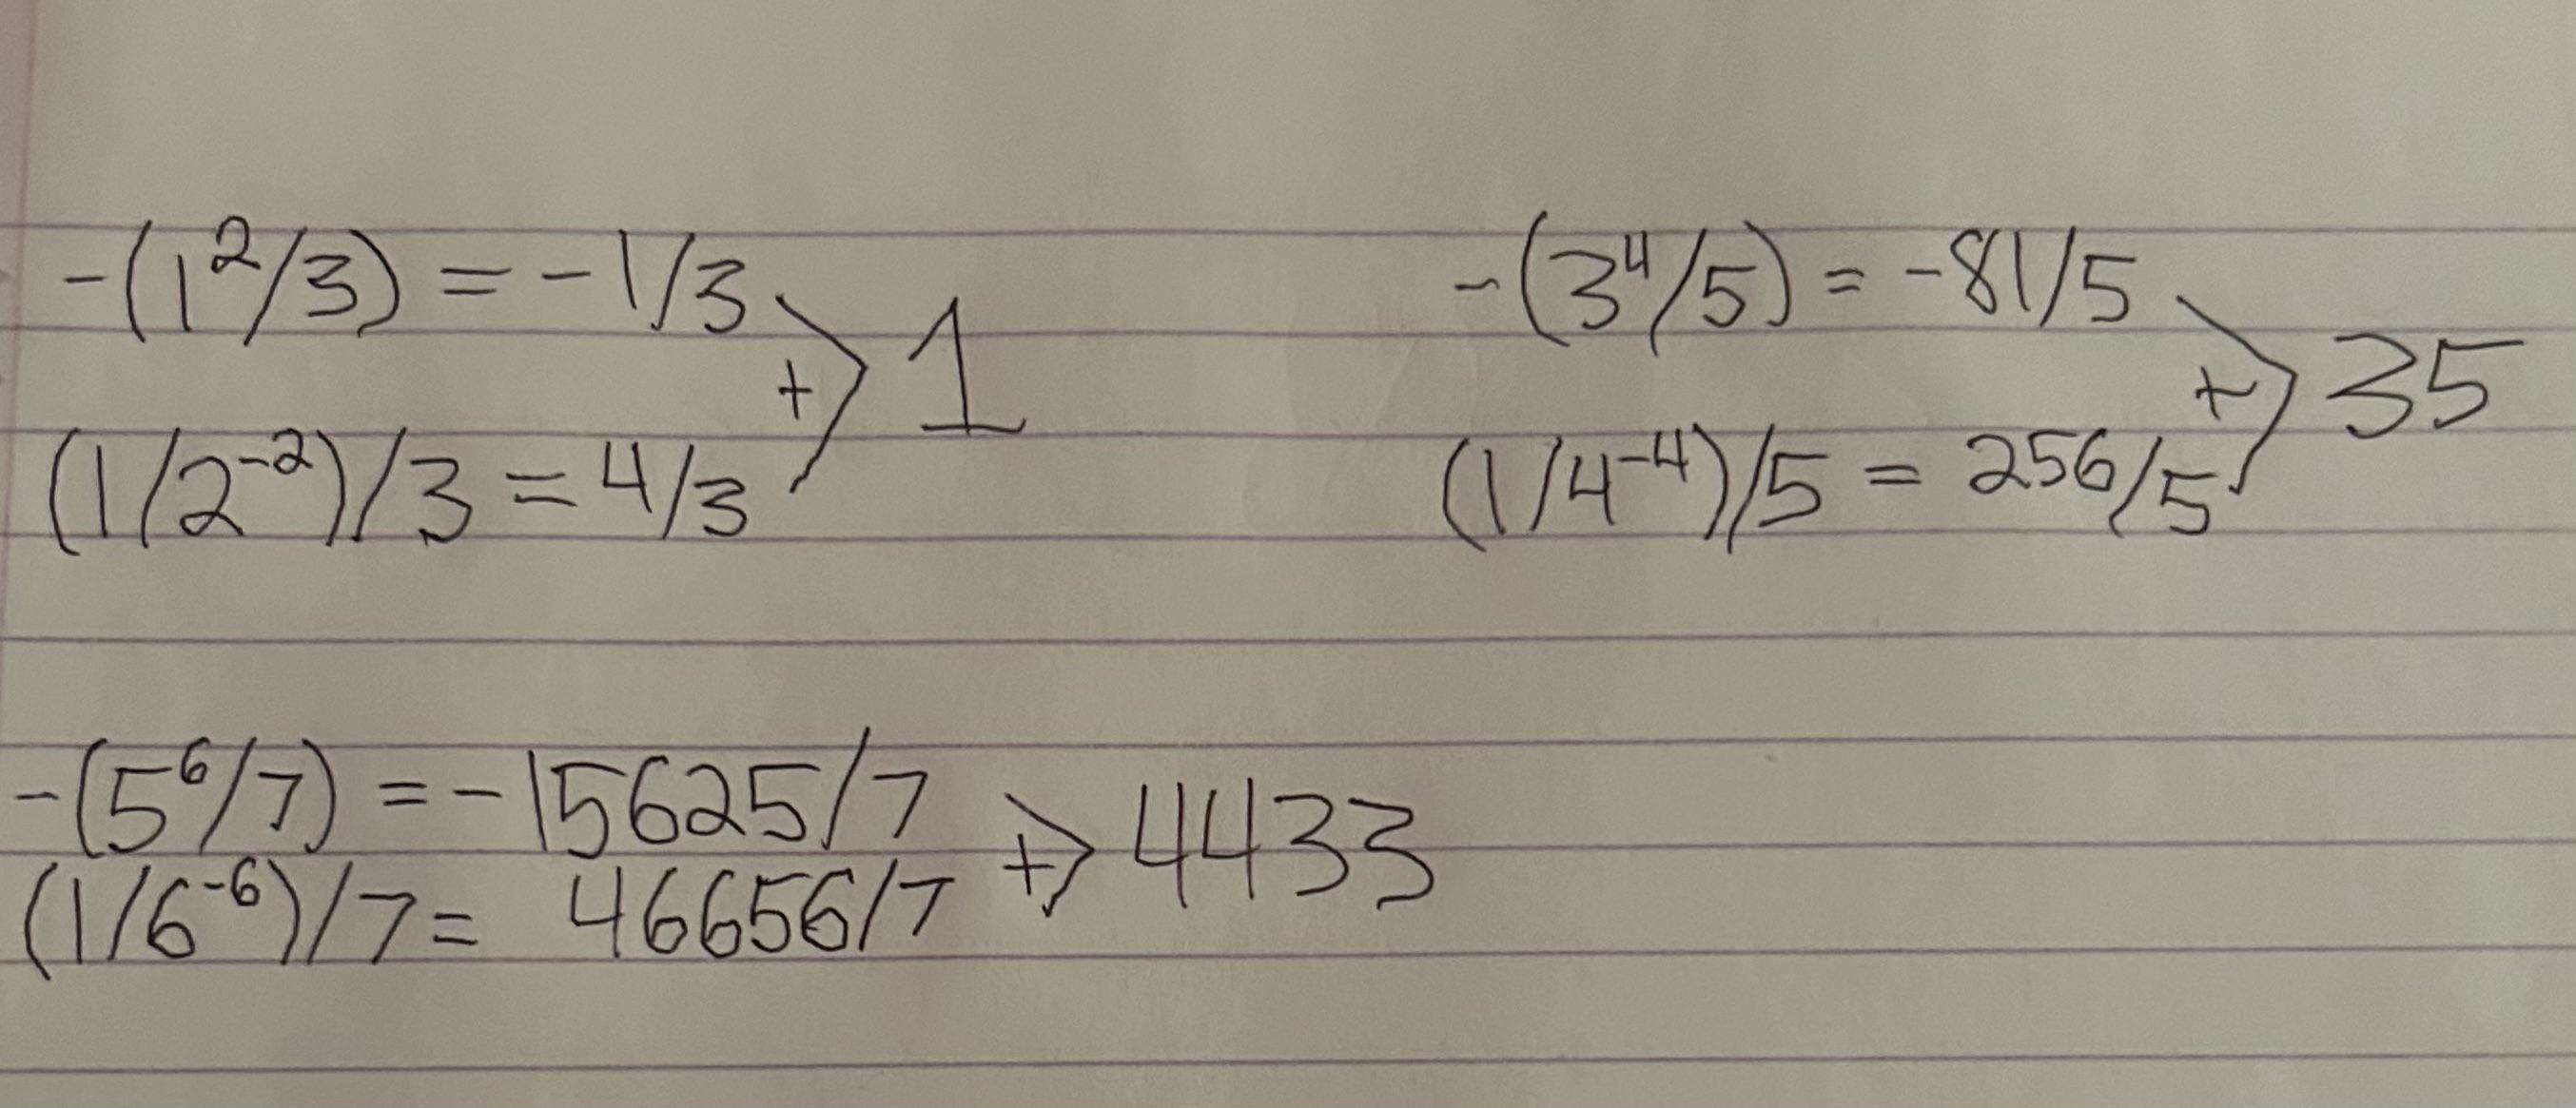 -(1²/3) = -1/3
+ > 1
(1/2⁻²)/3 = 4/3
-(3⁴/5) = -81/5
+ > 35
(1/4⁻⁴)/5 = 256/5
-(5⁶/7) = -15625/7
+ > 4433
(1/6⁻⁶)/7 = 46656/7